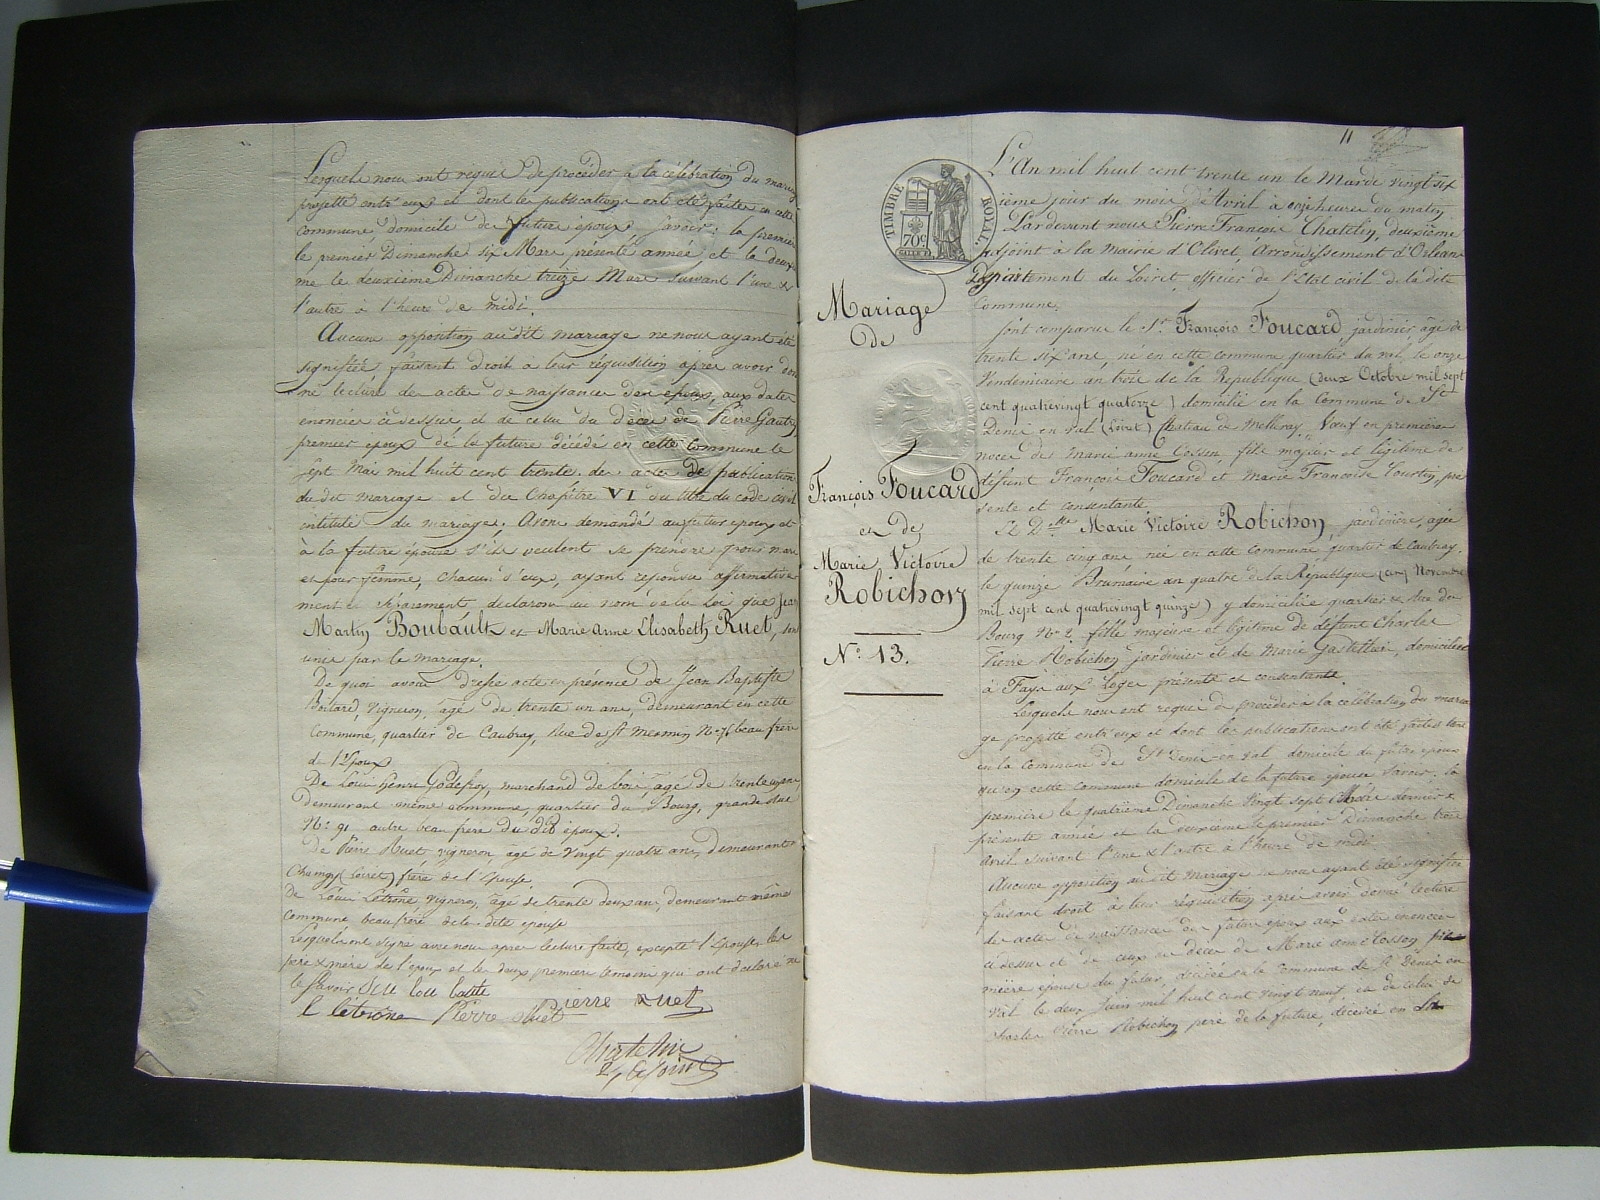 Lesquels nous ont requis de procéder à la célébration du mariage
projetté entr'eux et dont les publications ont été faites en cette
commune, domicile des futurs époux, Savoir: la première
le premier Dimanche six Mars présente année et la deuxiè
me le deuxième Dimanche treize Mars suivant l'une &
l'autre à l'heure de midi.
Aucune opposition audit mariage ne nous ayant été
signifiée, faisant droit à leur réquisition après avoir don
né lecture des actes de naissance des époux, aux dates
énoncées ci dessus, et de celui du Décès de Pierre Gautry
premier époux de la future décédé en cette commune le
Sept Mai mil huit cent trente. des actes de publication
du dit mariage et du Chapitre VI du titre du code civil
intitulé du mariage. Avons demandé au futur époux et
à la future épouse s'ils veulent se prendre pour mari
et pour femme, chacun d'eux, ayant répondu affirmative
ment & séparément, déclarons au nom de la Loi que Jean
Martin Boubault et Marie Anne Elisabeth Ruet, sont
unis par le mariage.
De quoi avons dressé acte en présence de Jean Baptiste
Boitard, Vigneron, âgé de trente un ans, demeurant en cette
Commune, quartier de Caubray, Rue de St Mesmin No 76 beau frère
de l'Epoux
De Louis Henri Godefroy, marchand de bois âgé de trente un ans,
demeurant même commune, quartier du Bourg, grande Rue
No 91 autre beau frère du dit époux.
de Pierre Ruet, vigneron, âgé de Vingt quatre ans, demeurant
Chaingy (Loiret) frère de l'épouse,
De Louis Letrône, vigneron, âgé de trente deux ans, demeurant même
commune beau frère de la dite épouse
Lesquels ont signé avec nous après lecture faite, excepté l'épouse, les
père & mère de l'époux et les deux premiers temoins qui ont déclaré ne
le savoir
L létrône Pierre Ruet Pierre Ruet
Chatelin
2e Adjoint
11
TIMBRE ROYAL.
70c
L'An mil huit cent trente un le Mardi vingt six
ième jour du mois d'Avril à onze heures du matin
Pardevant nous Pierre François Chatelin, deuxième
adjoint à la mairie d'Olivet, Arrondissement d'Orléans
Département du Loiret, officier de l'Etat civil de la dite
Commune,
Mariage
de
François Foucard
et de
Marie Victoire
Robichon
No 13.
Sont comparus le Sr François Foucard, jardinier, âgé de
trente six ans, né en cette commune quartier du val, le onze
Vendemiaire an trois de la République (deux Octobre mil sept
cent quatrevingt quatorze) domicilié en la Commune de St
Denis en val (Loiret) Chateau de Melleray, Veuf en premières
noces de Marie Anne Cosson, fils majeur et légitime de
défunt François Foucard et Marie Françoise Courtin, pré
sente et consentante
Et Dlle Marie Victoire Robichon, jardinière, agée
de trente cinq ans, née en cette commune quartier de Caubray,
le quinze Brumaire an quatre de la République (cinq Novembre
mil sept cent quatrevingt quinze) y domiciliée quartier & Rue du
Bourg No 2. fille majeure et légitime de défunt Charles
Pierre Robichon jardinier et de Marie Gastellier, domiciliée
à Fay aux Loges présente et consentante.
Lesquels nous ont requis de procéder à la célébration du maria
ge projetté entr'eux et dont les publications ont été faites tant
en la Commune de St Denis en val domicile du futur époux
qu'en cette commune domicile de la future épouse Savoir: la
première le quatrième Dimanche Vingt sept Mars dernier
présente année et la deuxième le premier Dimanche trois
Avril suivant l'une & l'autre à l'heure de midi
Aucune opposition au dit mariage ne nous ayant été signifiée
faisant droit à leur réquisition après avoir donné lecture
des actes de naissance des futurs époux aux dates énoncées
ci dessus et de ceux de décès de Marie Anne Cosson
épouse du futur, décédée en la commune de St Denis en
val le deux Juin mil huit cent vingt neuf, et de celui de
Charles Pierre Robichon père de la future, décédé en